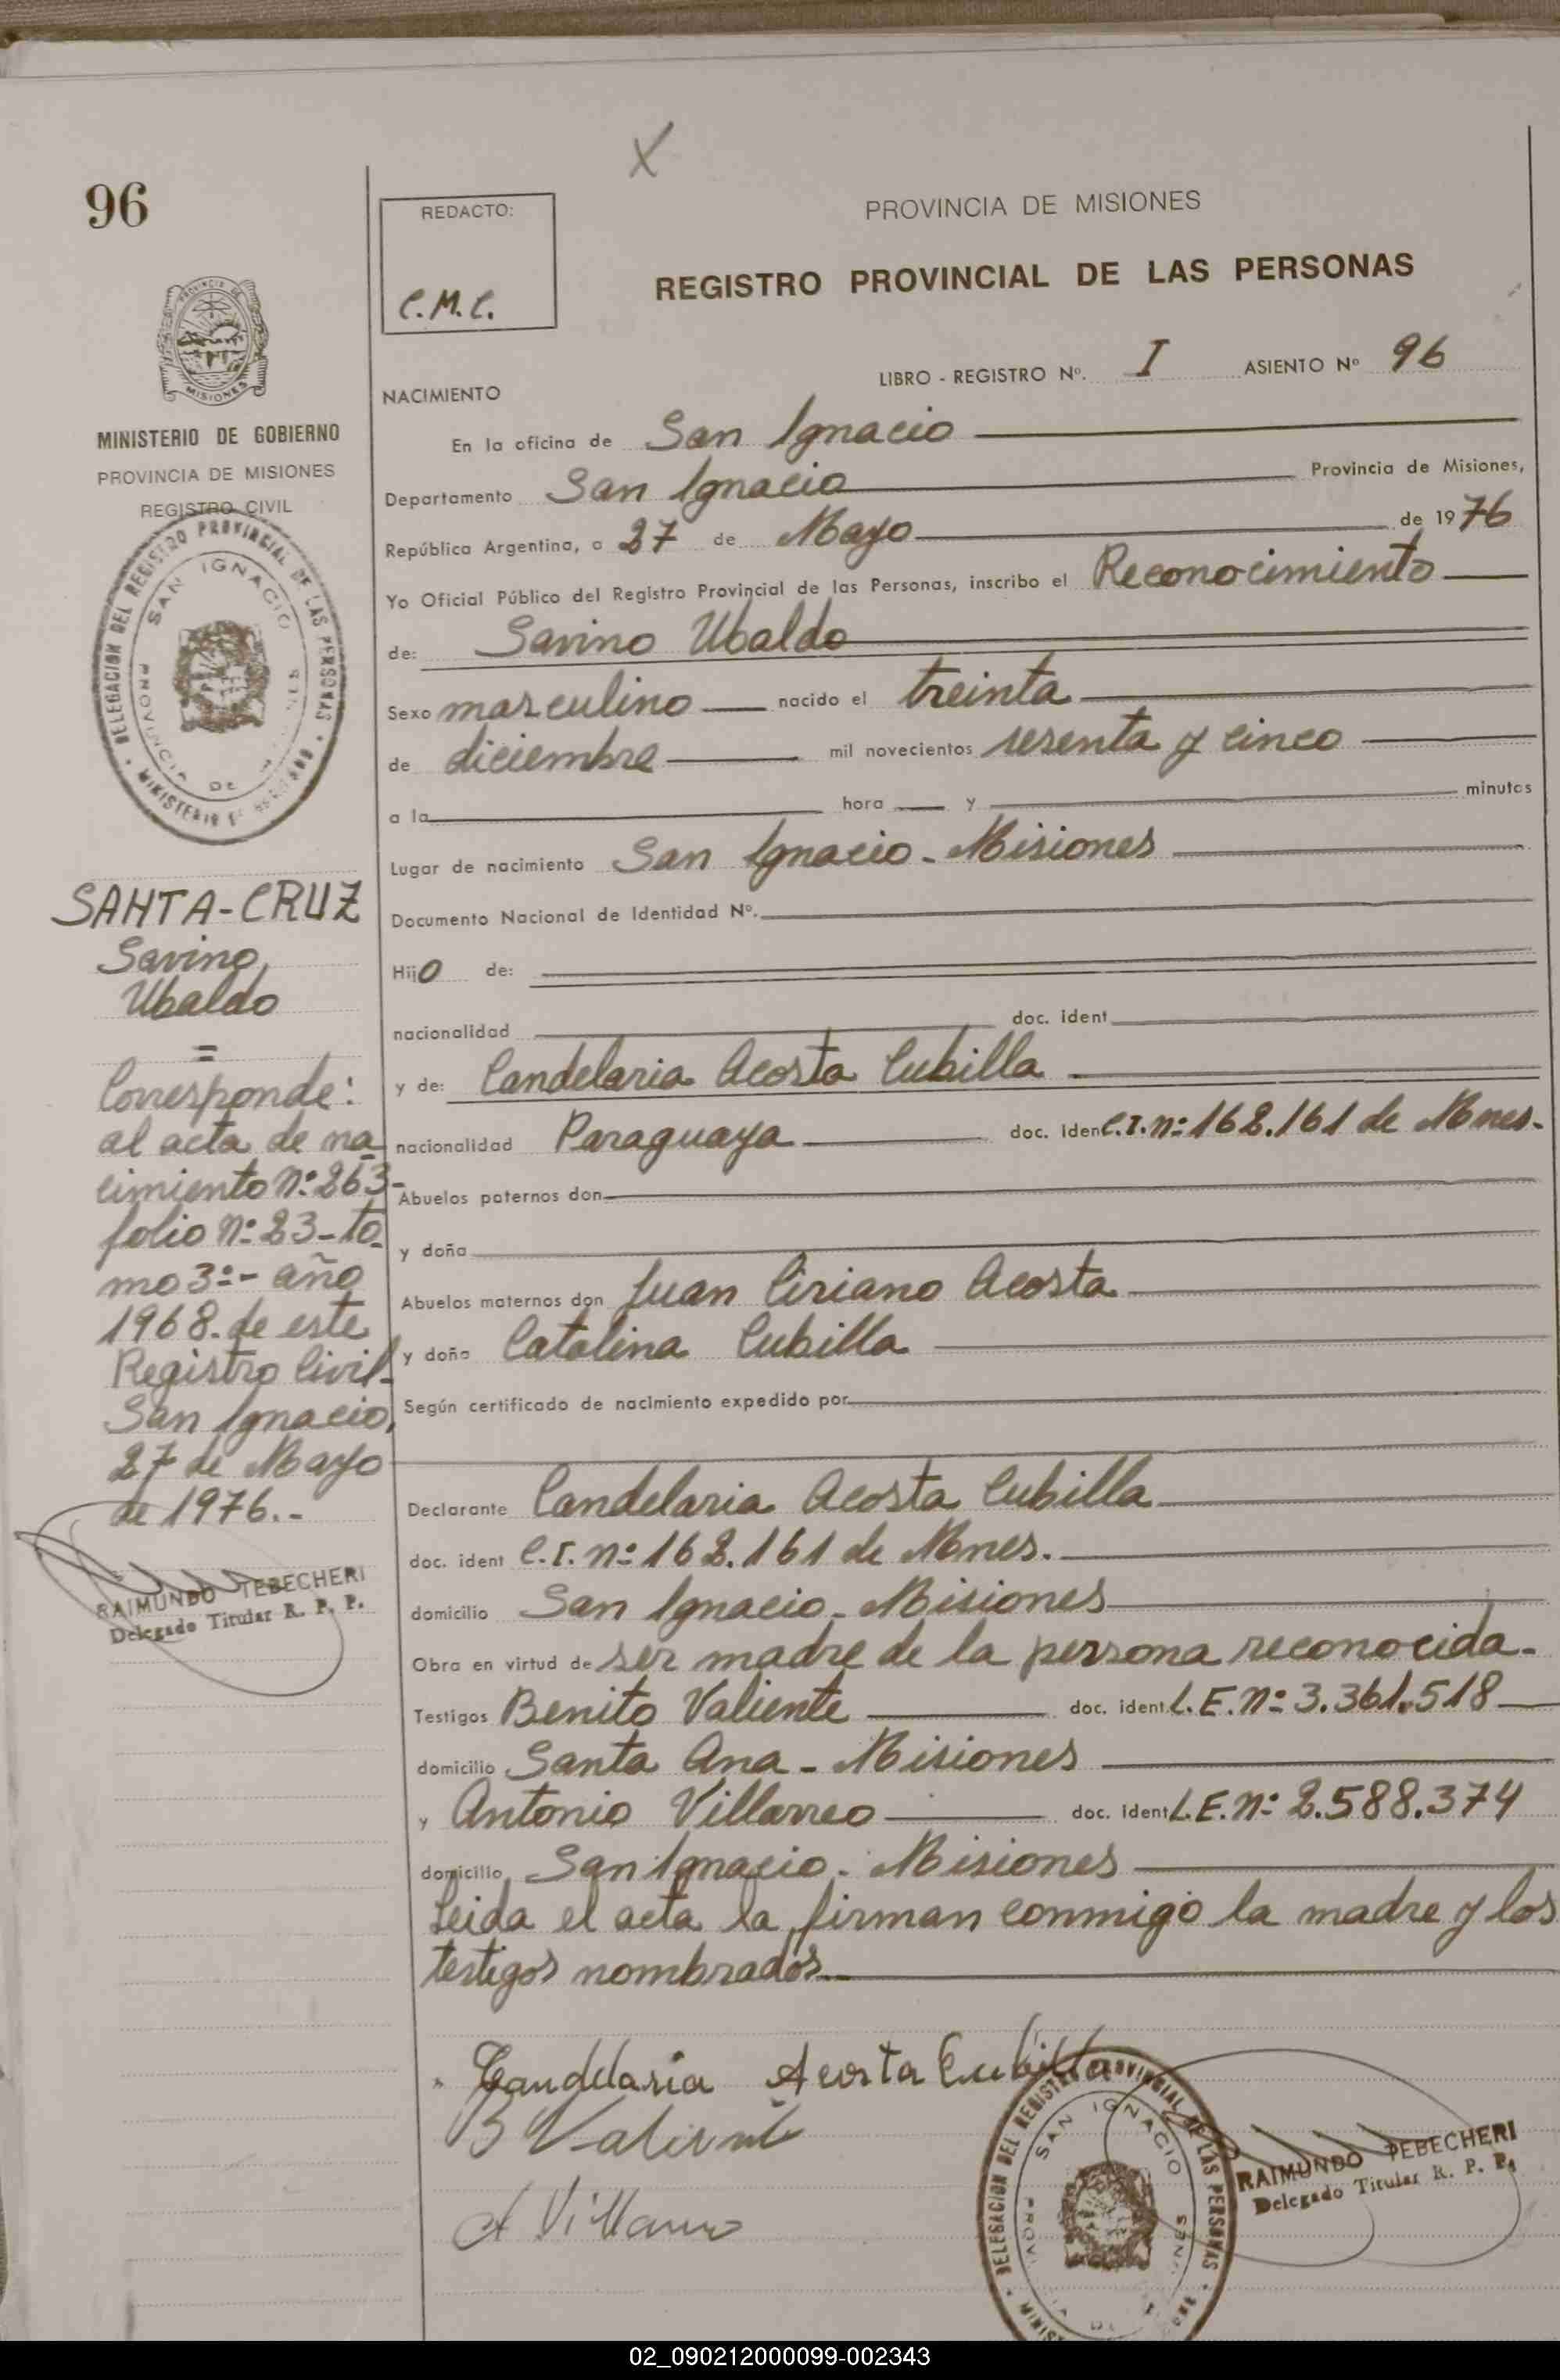 96
X
REDACTO:
C.M.C.
PROVINCIA DE MISIONES
REGISTRO PROVINCIAL DE LAS PERSONAS
LIBRO - REGISTRO Nº. I ASIENTO Nº 96
NACIMIENTO
En la oficina de San Ignacio
Departamento San Ignacio Provincia de Misiones,
República Argentina, a 27 de Mayo de 1976
Yo Oficial Público del Registro Provincial de las Personas, inscribo el Reconocimiento
de: Savino Ubaldo
Sexo masculino nacido el treinta
de diciembre mil novecientos sesenta y cinco
a la hora y minutos
Lugar de nacimiento San Ignacio - Misiones
Documento Nacional de Identidad Nº.
Hijo de:
nacionalidad doc. ident
y de: Candelaria Acosta Cubilla
nacionalidad Paraguaya doc. iden C.I. nº 162.161 de Mnes.
Abuelos paternos don
y doña
Abuelos maternos don Juan Ciriano Acosta
y doña Catalina Cubilla
Según certificado de nacimiento expedido por
Declarante Candelaria Acosta Cubilla
doc. ident C.I. nº 162.161 de Mnes.
domicilio San Ignacio - Misiones
Obra en virtud de ser madre de la persona reconocida.
Testigos Benito Valiente doc. ident. L.E. nº 3.361.518
domicilio Santa Ana - Misiones
y Antonio Villarreo doc. ident L.E. nº 2.588.374
domicilio San Ignacio - Misiones
Leida el acta la firman conmigo la madre y los
testigos nombrados.
Candelaria Acosta Cubilla
B Valiente
A Villarreo
DELEGACION DEL REGISTRO PROVINCIAL DE LAS PERSONAS
SAN IGNACIO
RAIMUNDO TEBECHERI
Delegado Titular R. P. P.
PROVINCIA DE
MISIONES
MINISTERIO DE GOBIERNO
PROVINCIA DE MISIONES
REGISTRO CIVIL
DELEGACION DEL REGISTRO PROVINCIAL DE LAS PERSONAS
SAN IGNACIO
PROVINCIA DE
SANTA-CRUZ
Savino
Ubaldo
=
Corresponde:
al acta de na
cimiento nº 263-
folio nº 23-to
mo 3º- año
1968. de este
Registro Civil-
San Ignacio,
27 de Mayo
de 1976.-
RAIMUNDO TEBECHERI
Delegado Titular R. P. P.
02_090212000099-002343